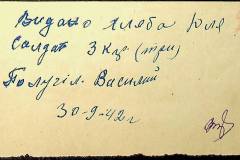 Видано хлеба для
Солдат 3 Кг (три)
Получил. Василий
30-9-42 г